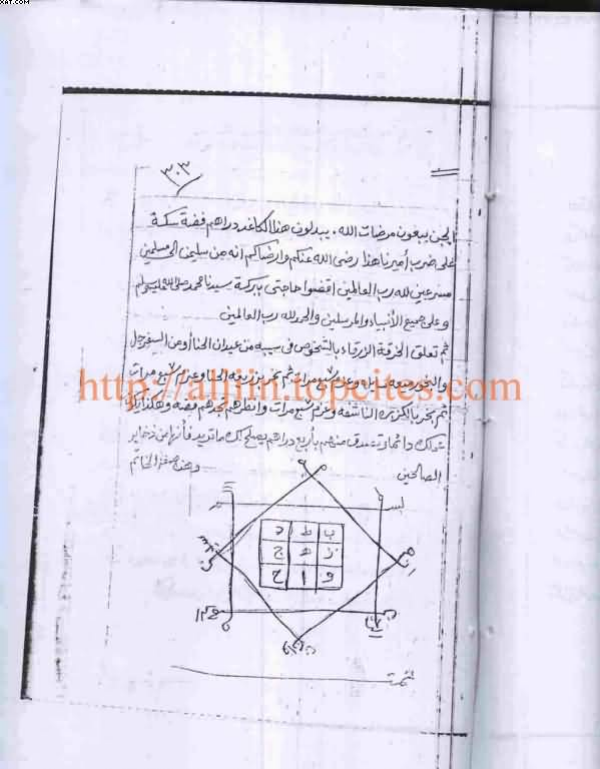 xat.com
٣٠٣
الجن يبغون مرضات الله. يبدلون هذا الكاغد دراهم فضة سكة
على ضرب أميرنا هذا رضي الله عنكم وارضاكم انه من سليمن الى مسلمين
مسرعين لله رب العالمين اقضوا حاجتي ببركة سيدنا محمد صلى الله عليه وسلم
وعلى جميع الأنبياء والمرسلين والحمد لله رب العالمين
ثم تعلق الخرقة الزرقاء بالشخوص في سيبه من عيدان الحنا أو من السفرجل
والبخور مرات ثم مرات
ثم بخر بالكزبره الناشفة وعزم سبع مرات وانظرهم تجدهم فضه وهكذا
دائما وتصدق منهم بأربع دراهم يصلح لك ما تريد فأنها من ذخاير
الصالحين وهذه صفة الخاتم
http://aljjin.topcites.com
ب ط د
ز ه ج
و ا ح
تمت